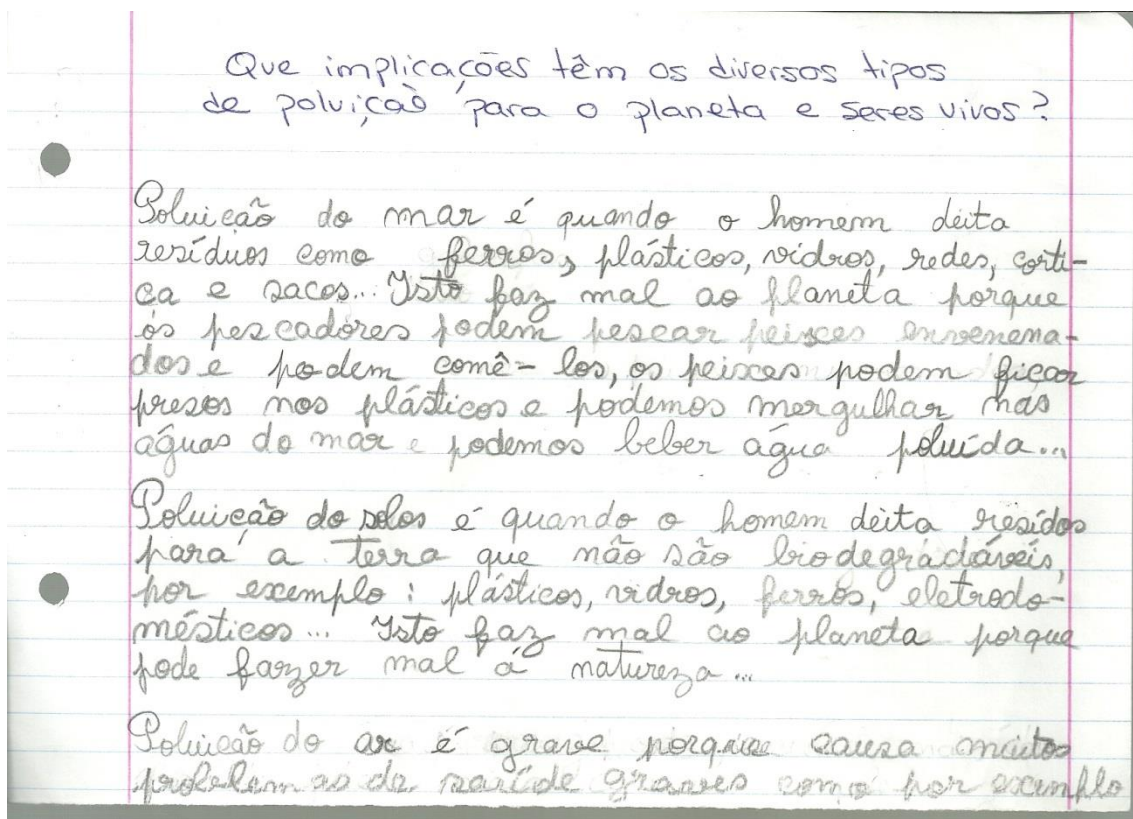 Que implicações têm os diversos tipos
de poluição para o planeta e seres vivos?
Poluicão do mar é quando o homem deita
resíduos como ferros, plásticos, vidros, redes, corti-
ca e sacos... Isto faz mal ao planeta porque
os pescadores podem pescar peixes envenena-
dos e podem comê-los, os peixes podem ficar
presos nos plásticos e podemos mergulhar nas
águas do mar e podemos beber água poluída...
Poluicão do solos é quando o homem deita resídos
para a terra que não são biodegradáveis,
por exemplo: plásticos, vidros, ferros, eletrodo-
mésticos... Isto faz mal ao planeta porque
pode fazer mal á natureza...
Poluicão do ar é grave porque causa muitos
problemas de saúde graves como por exemplo